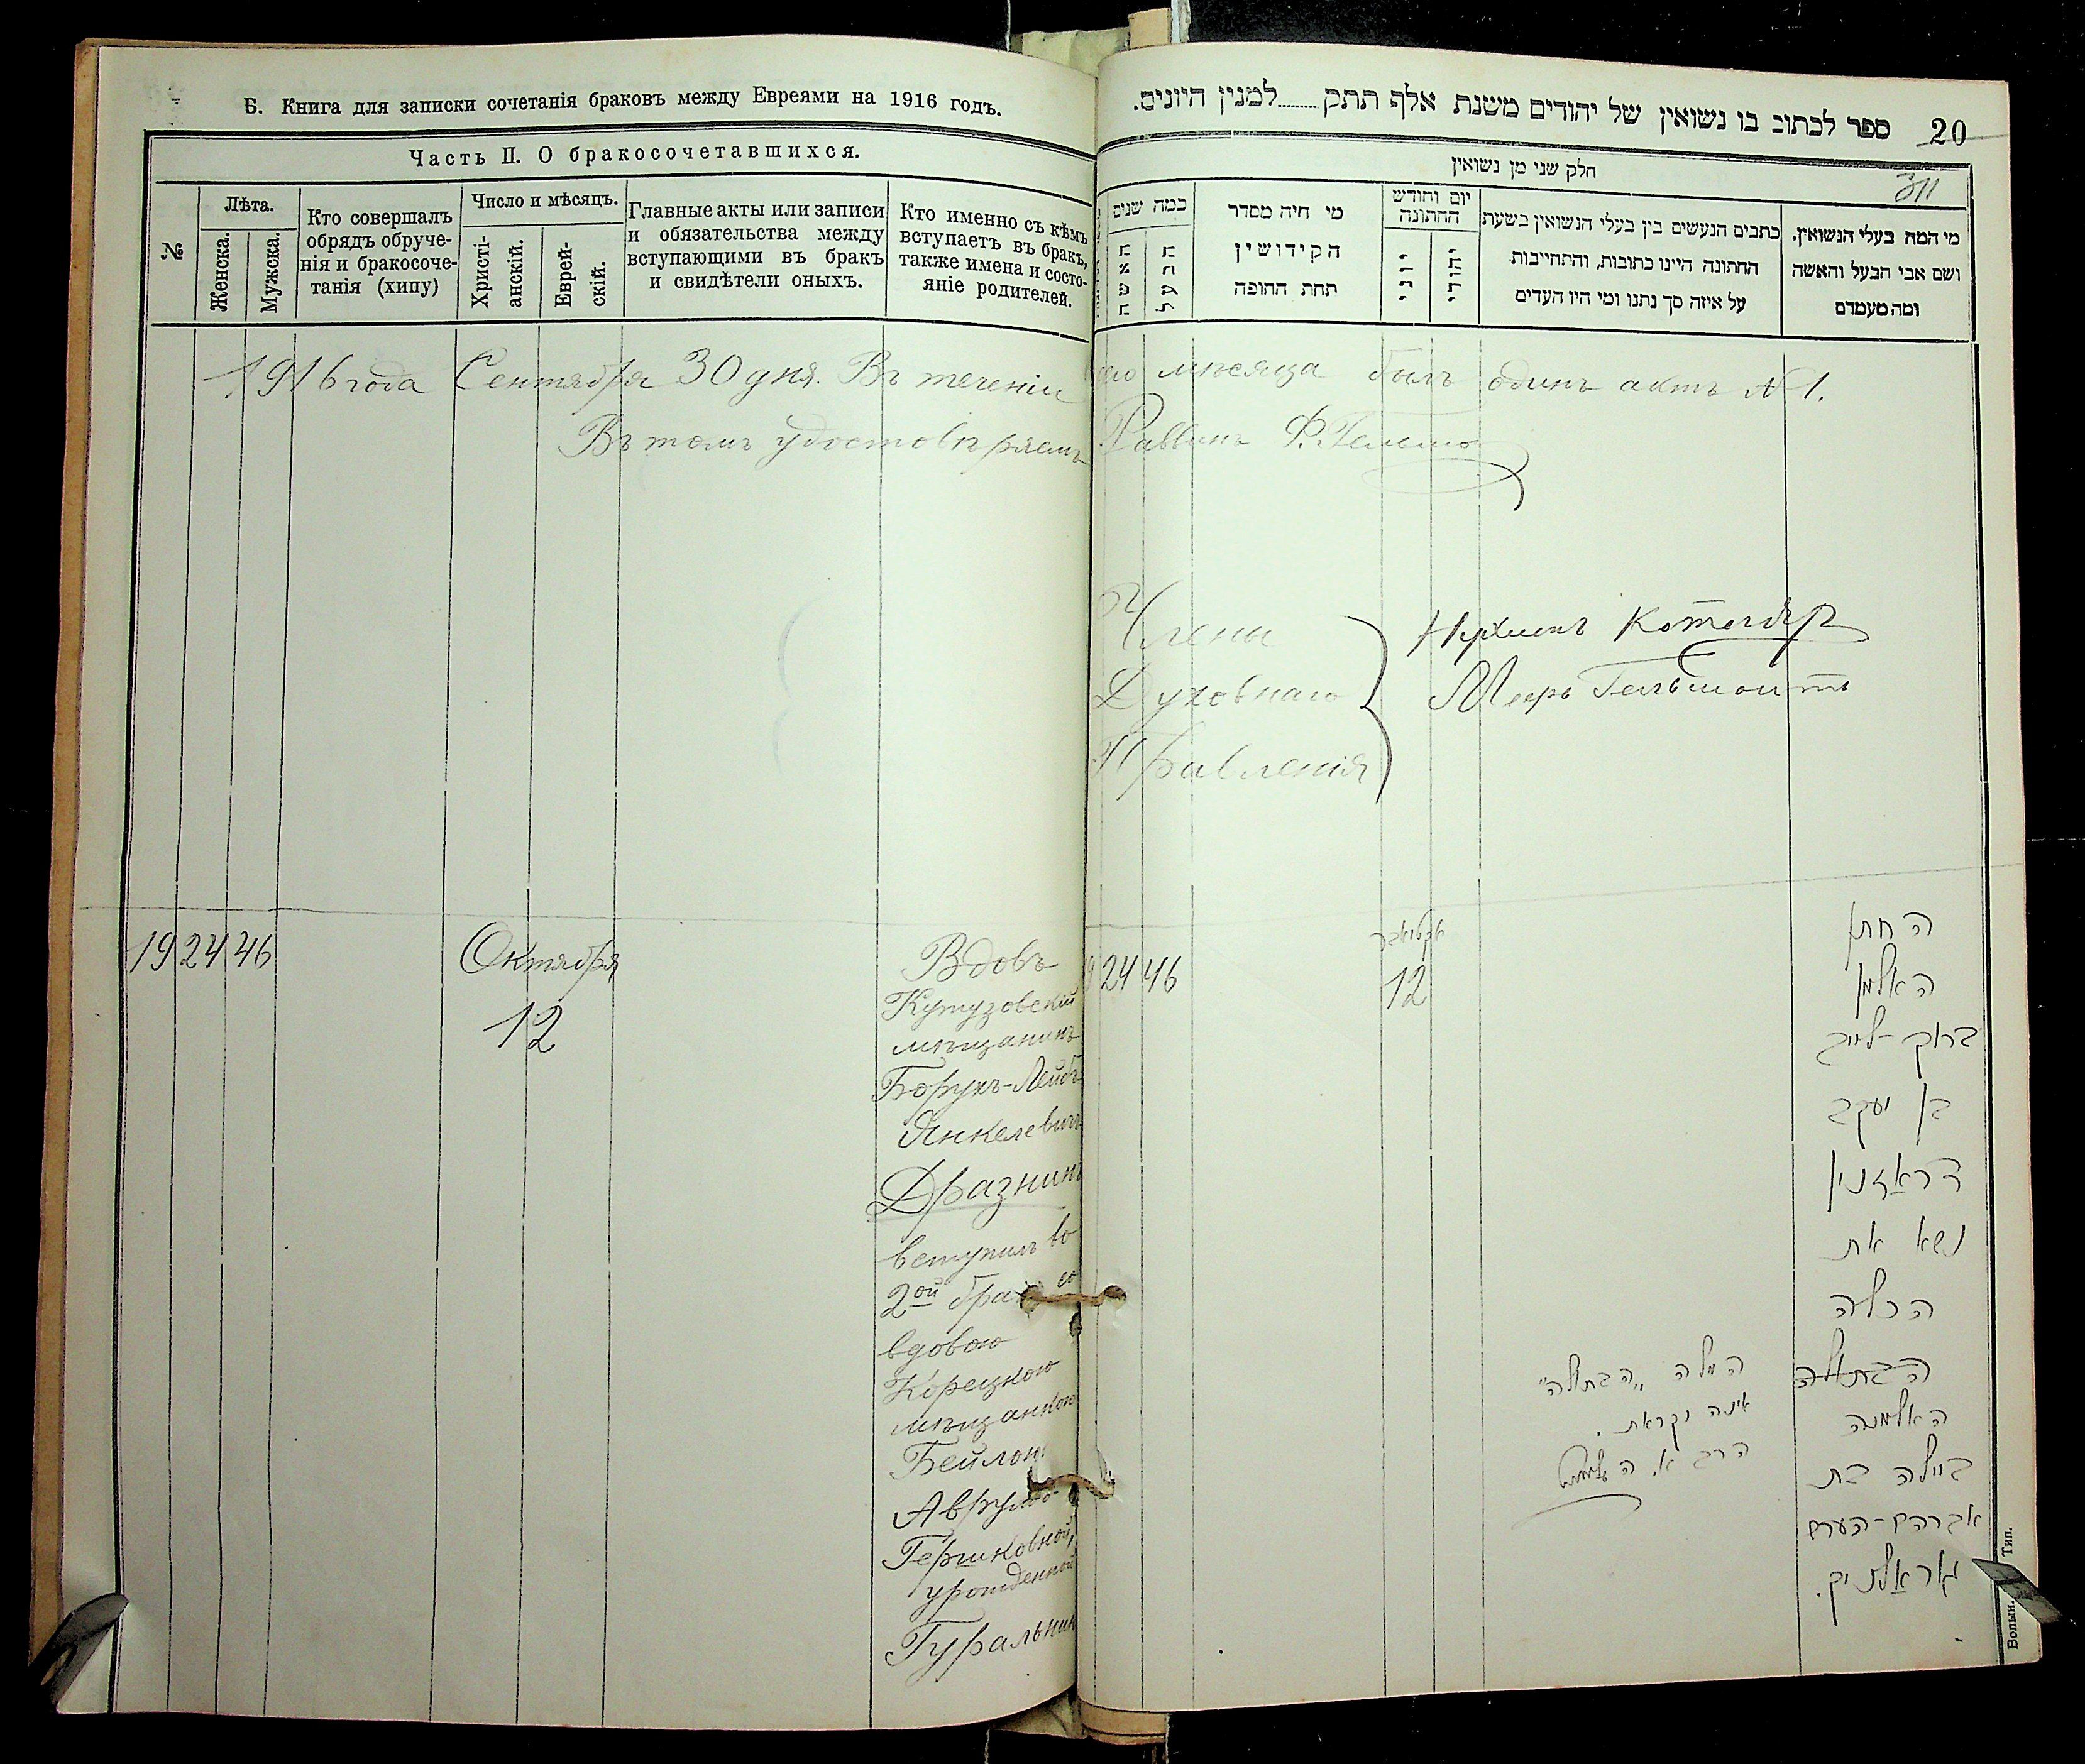 Б. Книга для записки сочетанія браковъ между Евреями на 1916 годъ.
Часть II. О бракосочетавшихся.
№
Лѣта.
Женска.
Мужска.
Кто совершалъ
обрядъ обруче-
нія и бракосоче-
танія (хипу)
Число и мѣсяцъ.
Христі-
анскій.
Еврей-
скій.
Главные акты или записи
и обязательства между
вступающими въ бракъ
и свидѣтели оныхъ.
Кто именно съ кѣмъ
вступаетъ въ бракъ,
также имена и состо-
яніе родителей.
ספר לכתוב בו נשואין של יהודים משנת אלף תתק.........למנין היונים.
20
חלק שני מן נשואין
311
כמה שנים
האשה
הבעל
מי היה מסדר
הקידושין
תחת החופה
יום וחודש
החתונה
יוני
יהודי
כתבים הנעשים בין בעלי הנשואין בשעת
החתונה היינו כתובות, והתחייבות
על איזה סך נתנו ומי היו העדים
מי המה בעלי הנשואין.
ושם אבי הבעל והאשה
ומה מעמדם
1916 года Сентября 30 дня. Въ теченіи
мѣсяца былъ одинъ актъ № 1.
Въ томъ удостовѣряемъ
Раввинъ Ф.
Члены
Духовнаго
Правленія
Котляръ
Мееръ Гельмонтъ
19 24 46
Октября
12
Вдовъ
Кутузовскій
мѣщанинъ
Борухъ-Лейбъ
Янкелевичъ
Дразнинъ
вступилъ во
2ой бракъ со
вдовою
Корецкою
мѣщанкою
Бейлою
Аврумо-
Гершковной,
урожденной
Гуральник
24 46
אקטיאבר
12
החתן
האלמן
ברוך-לייב
בן יעקב
דראזנין
נשא את
הכלה
הבתולה
האלמנה
ביילה בת
אברהם-הערש
גוראלניק.
המלה „הבתולה"
אינה נקראת.
הרב א.
Волын. Тип.